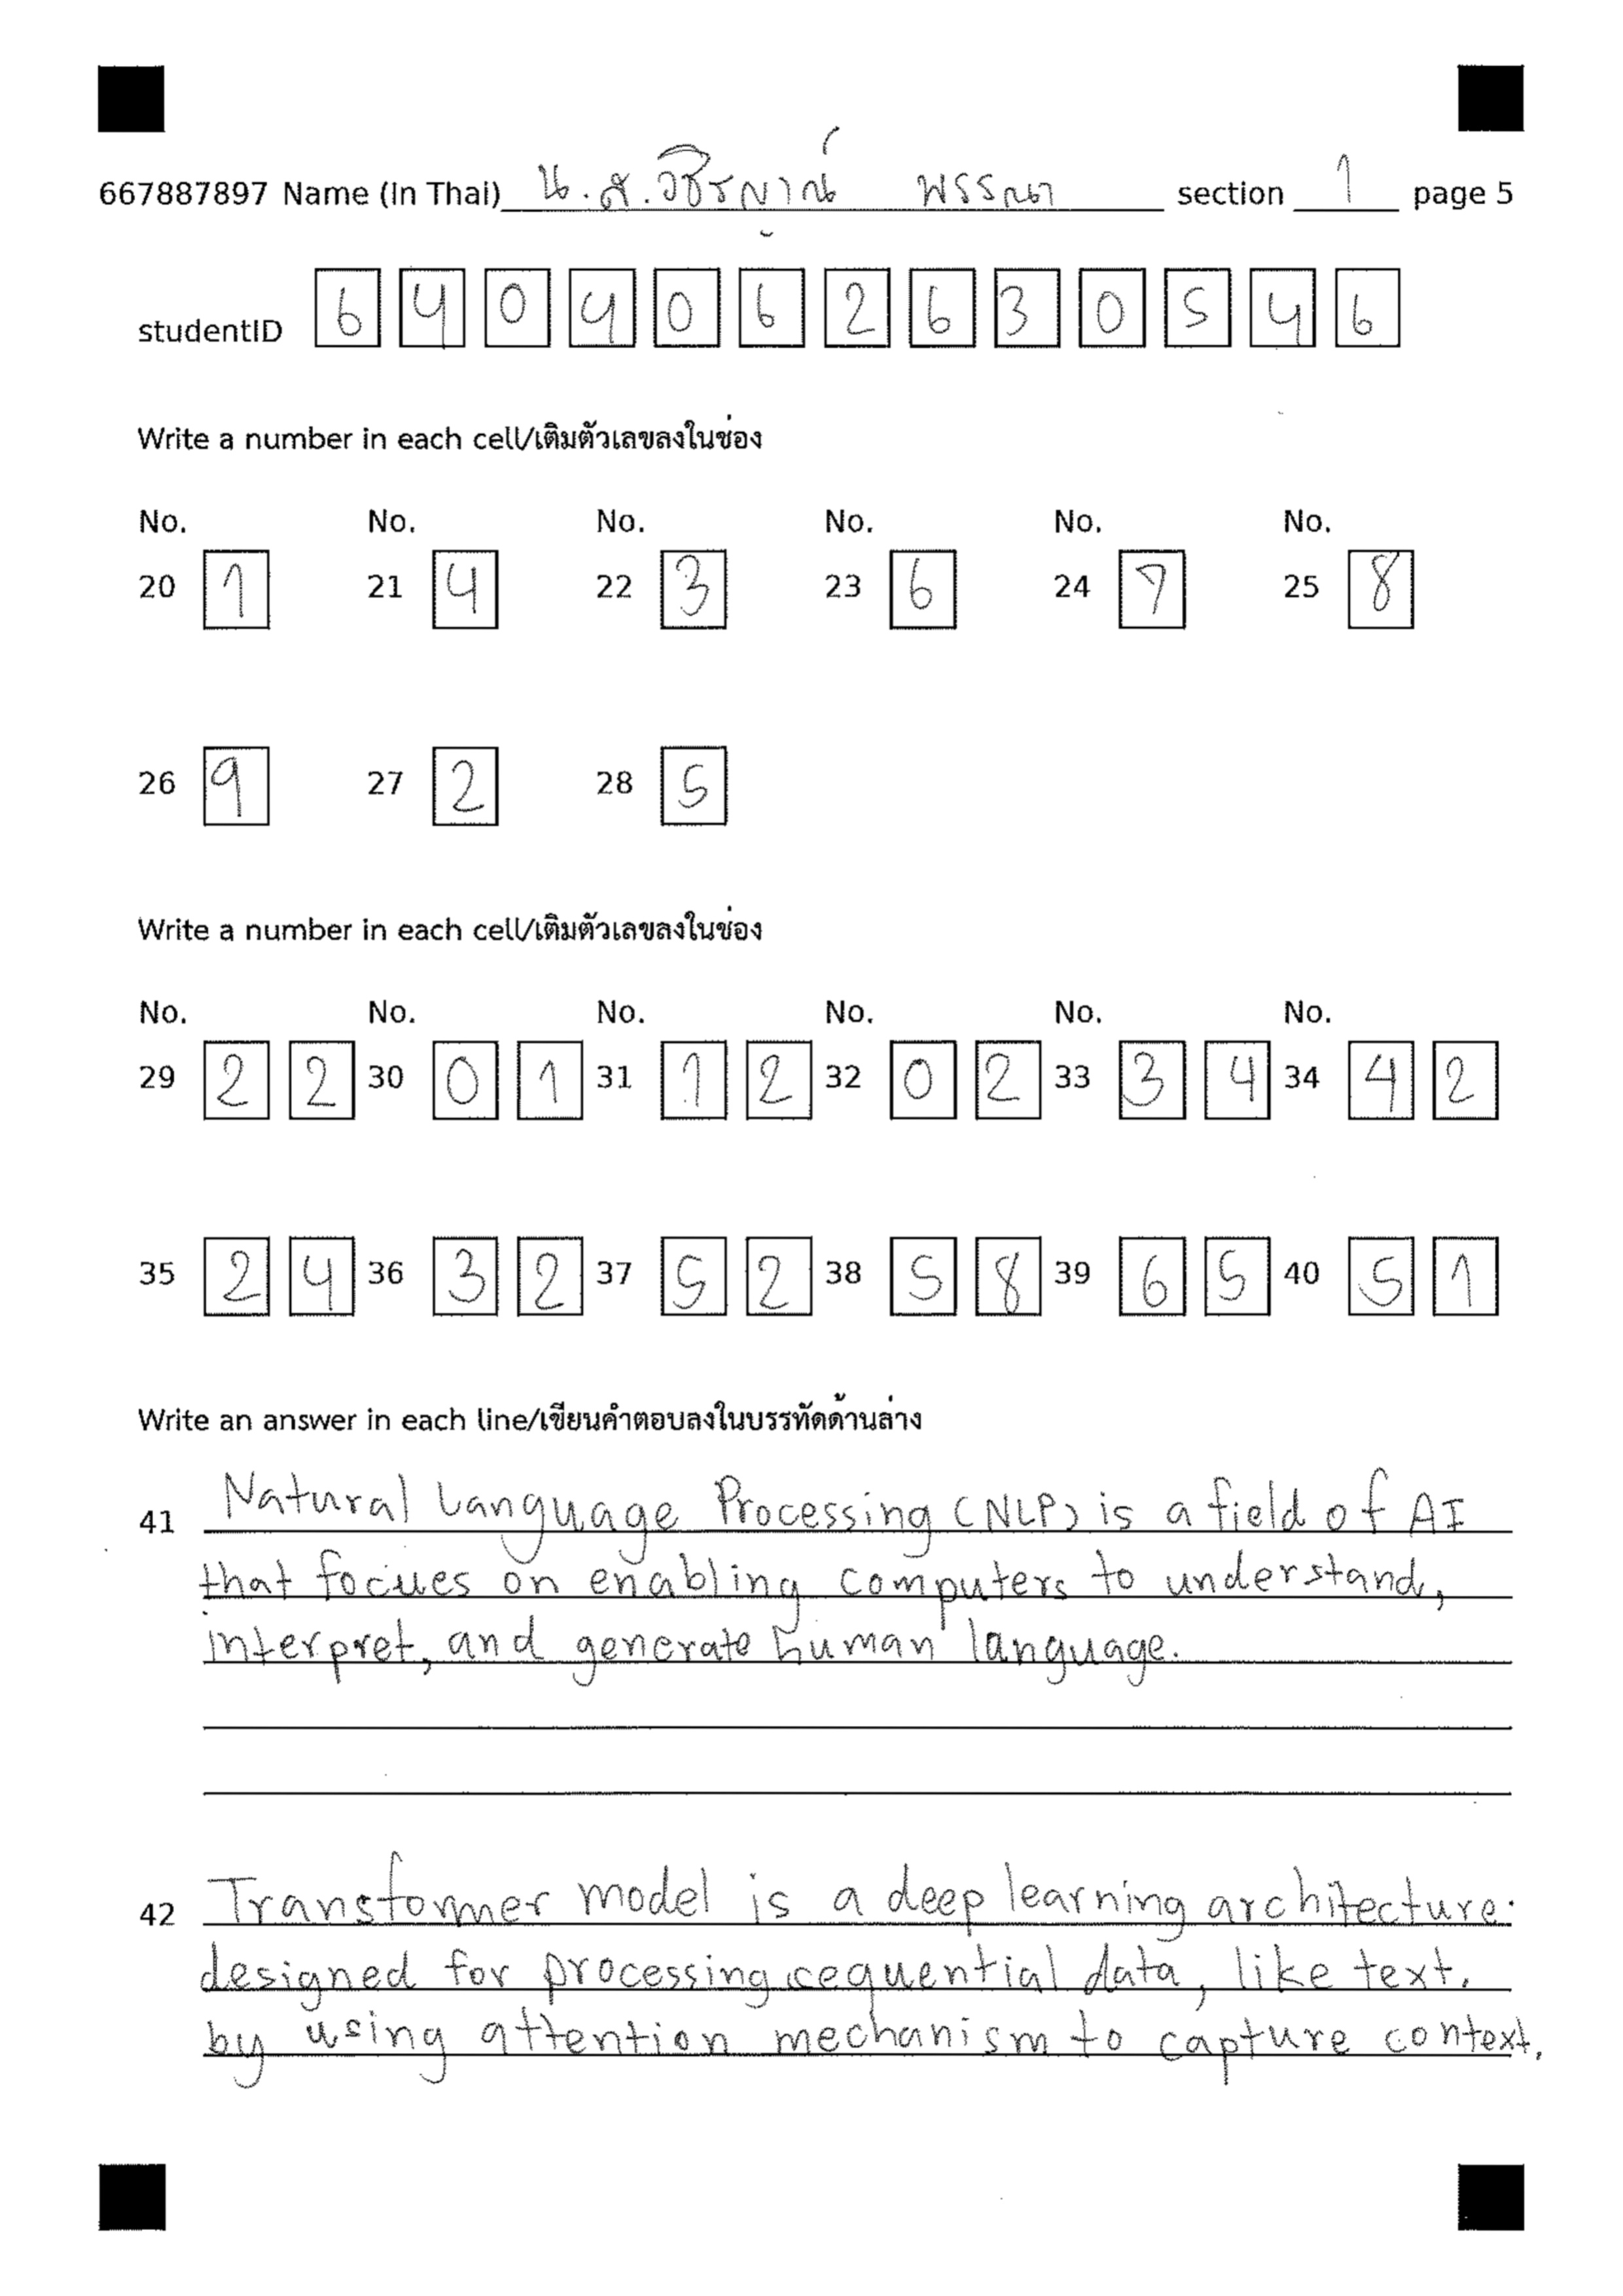 667887897 Name (In Thai) น.ส.วชิรญาณ์ พรรณา section 1 page 5
studentID 6 4 0 4 0 6 2 6 3 0 5 4 6
Write a number in each cell/เติมตัวเลขลงในช่อง
No. No. No. No. No. No.
20 1 21 4 22 3 23 6 24 7 25 8
26 9 27 2 28 5
Write a number in each cell/เติมตัวเลขลงในช่อง
No. No. No. No. No. No.
29 2 2 30 0 1 31 1 2 32 0 2 33 3 4 34 4 2
35 2 4 36 3 2 37 5 2 38 5 8 39 6 5 40 5 1
Write an answer in each line/เขียนคำตอบลงในบรรทัดด้านล่าง
41 Natural Language Processing (NLP) is a field of AI
that focues on enabling computers to understand,
interpret, and generate human language.
42 Transformer model is a deep learning architecture.
designed for processing cequential data, like text.
by using attention mechanism to capture context.